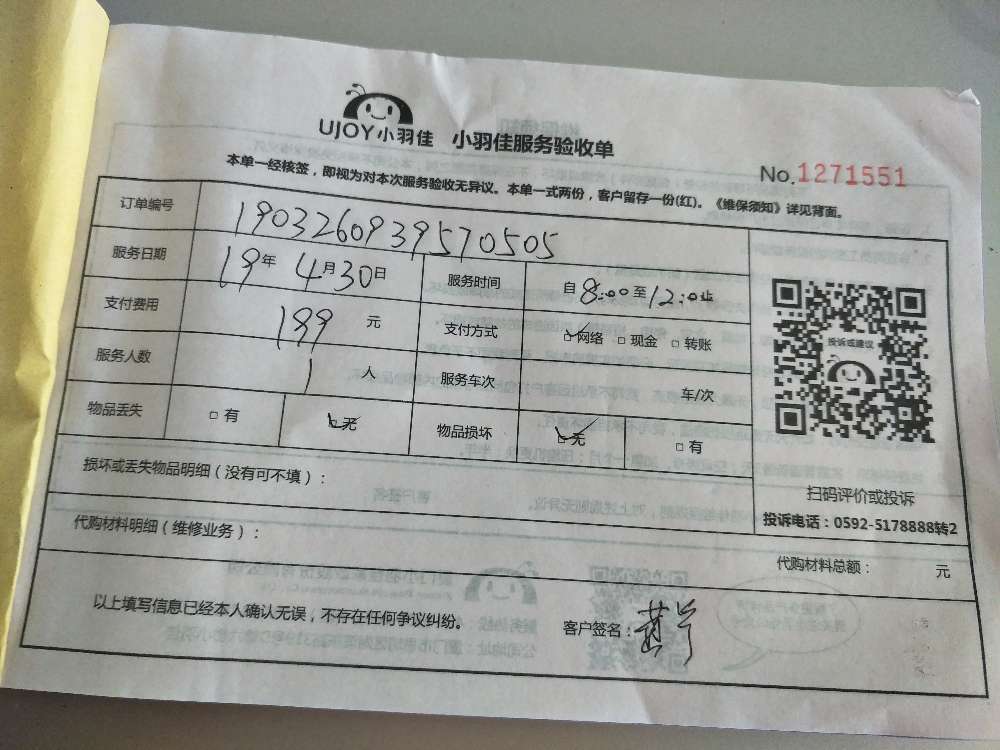 UJOY小羽佳 小羽佳服务验收单
No.1271551
本单一经核签，即视为对本次服务验收无异议。本单一式两份，客户留存一份(红)。《维保须知》详见背面。
订单编号 1903260939570505
服务日期 19年 4月30日 服务时间 自8:00至12:00止
支付费用 199 元 支付方式 网络 现金 转账
服务人数 1 人 服务车次 车/次
物品丢失 有 无 物品损坏 无 有
投诉或建议
扫码评价或投诉
投诉电话：0592-5178888转2
损坏或丢失物品明细（没有可不填）：
代购材料明细（维修业务）：
代购材料总额： 元
以上填写信息已经本人确认无误，不存在任何争议纠纷。 客户签名：